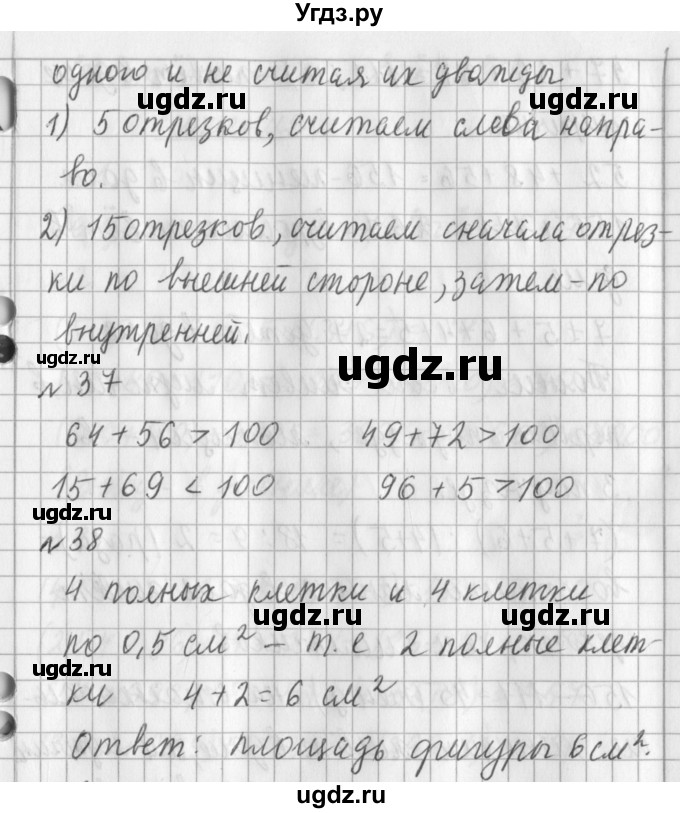 Угдз.ру
одного и не считая их дважды
ugdz.ru ugdz.ru
1) 5 отрезков, считаем слева напра-
во.
ugdz.ru
2) 15 отрезков, считаем сначала отрез-
ки по внешней стороне, затем - по
внутренней.
ugdz.ru
ugdz.ru
№ 37
64 + 56 > 100 49 + 72 > 100
15 + 69 < 100 96 + 5 > 100
ugdz.ru
№ 38
4 полных клетки и 4 клетки
ugdz.ru ugdz.ru
по 0,5 см² – т. е 2 полные клет-
ugdz.ru
ки 4 + 2 = 6 см²
ugdz.ru
Ответ: площадь фигуры 6 см².
ugdz.ru